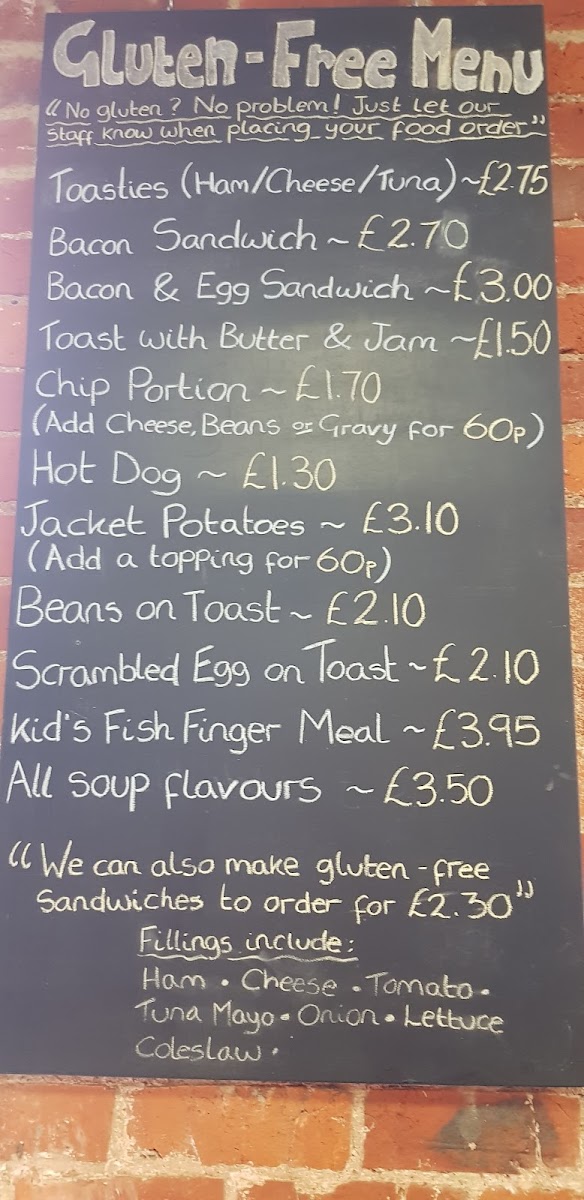 Gluten-Free Menu
"No gluten? No problem! Just let our
staff know when placing your food order"
Toasties (Ham/Cheese/Tuna) ~£2.75
Bacon Sandwich ~ £2.70
Bacon & Egg Sandwich ~£3.00
Toast with Butter & Jam ~£1.50
Chip Portion ~ £1.70
(Add Cheese, Beans or Gravy for 60p)
Hot Dog ~ £1.30
Jacket Potatoes ~ £3.10
(Add a topping for 60p)
Beans on Toast ~ £2.10
Scrambled Egg on Toast ~ £2.10
Kid's Fish Finger Meal ~ £3.95
All soup flavours ~ £3.50
"We can also make gluten-free
sandwiches to order for £2.30"
Fillings include:
Ham • Cheese • Tomato •
Tuna Mayo • Onion • Lettuce
Coleslaw •